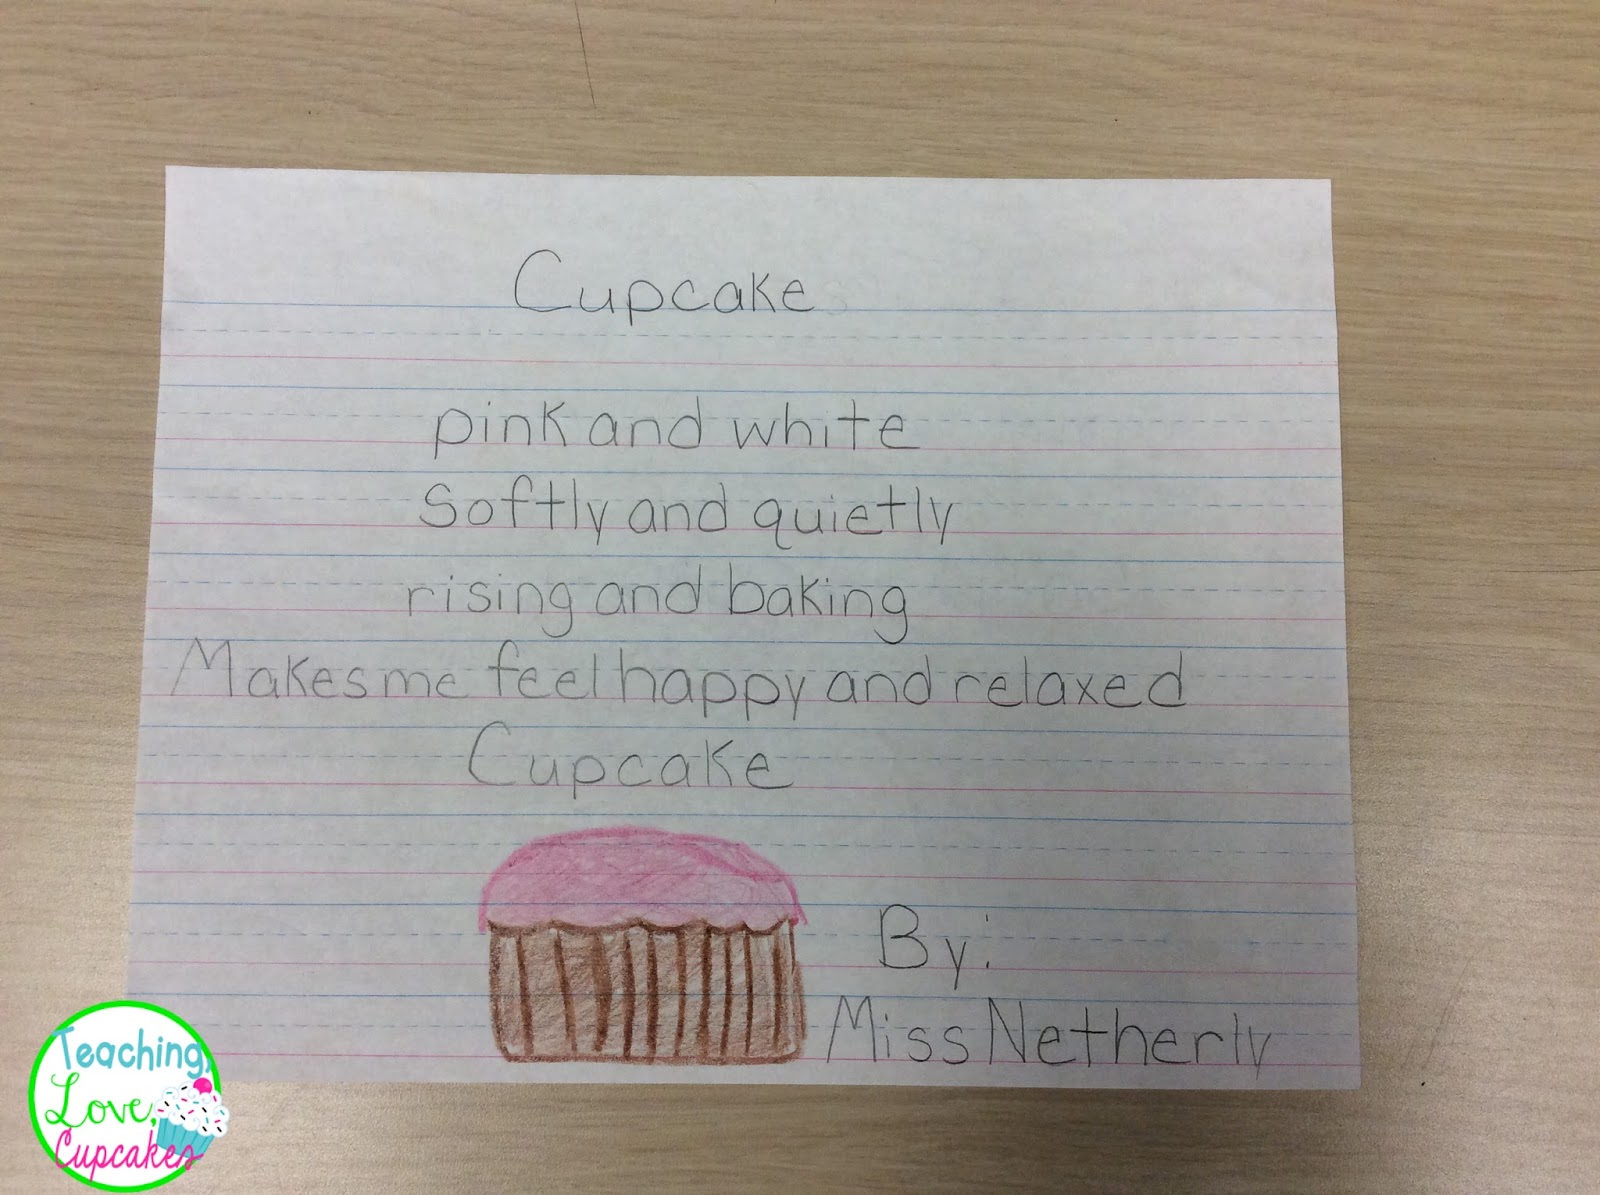 Cupcake
pink and white
Softly and quietly
rising and baking
Makes me feel happy and relaxed
Cupcake
By:
Miss Netherly
Teaching,
Love,
Cupcakes